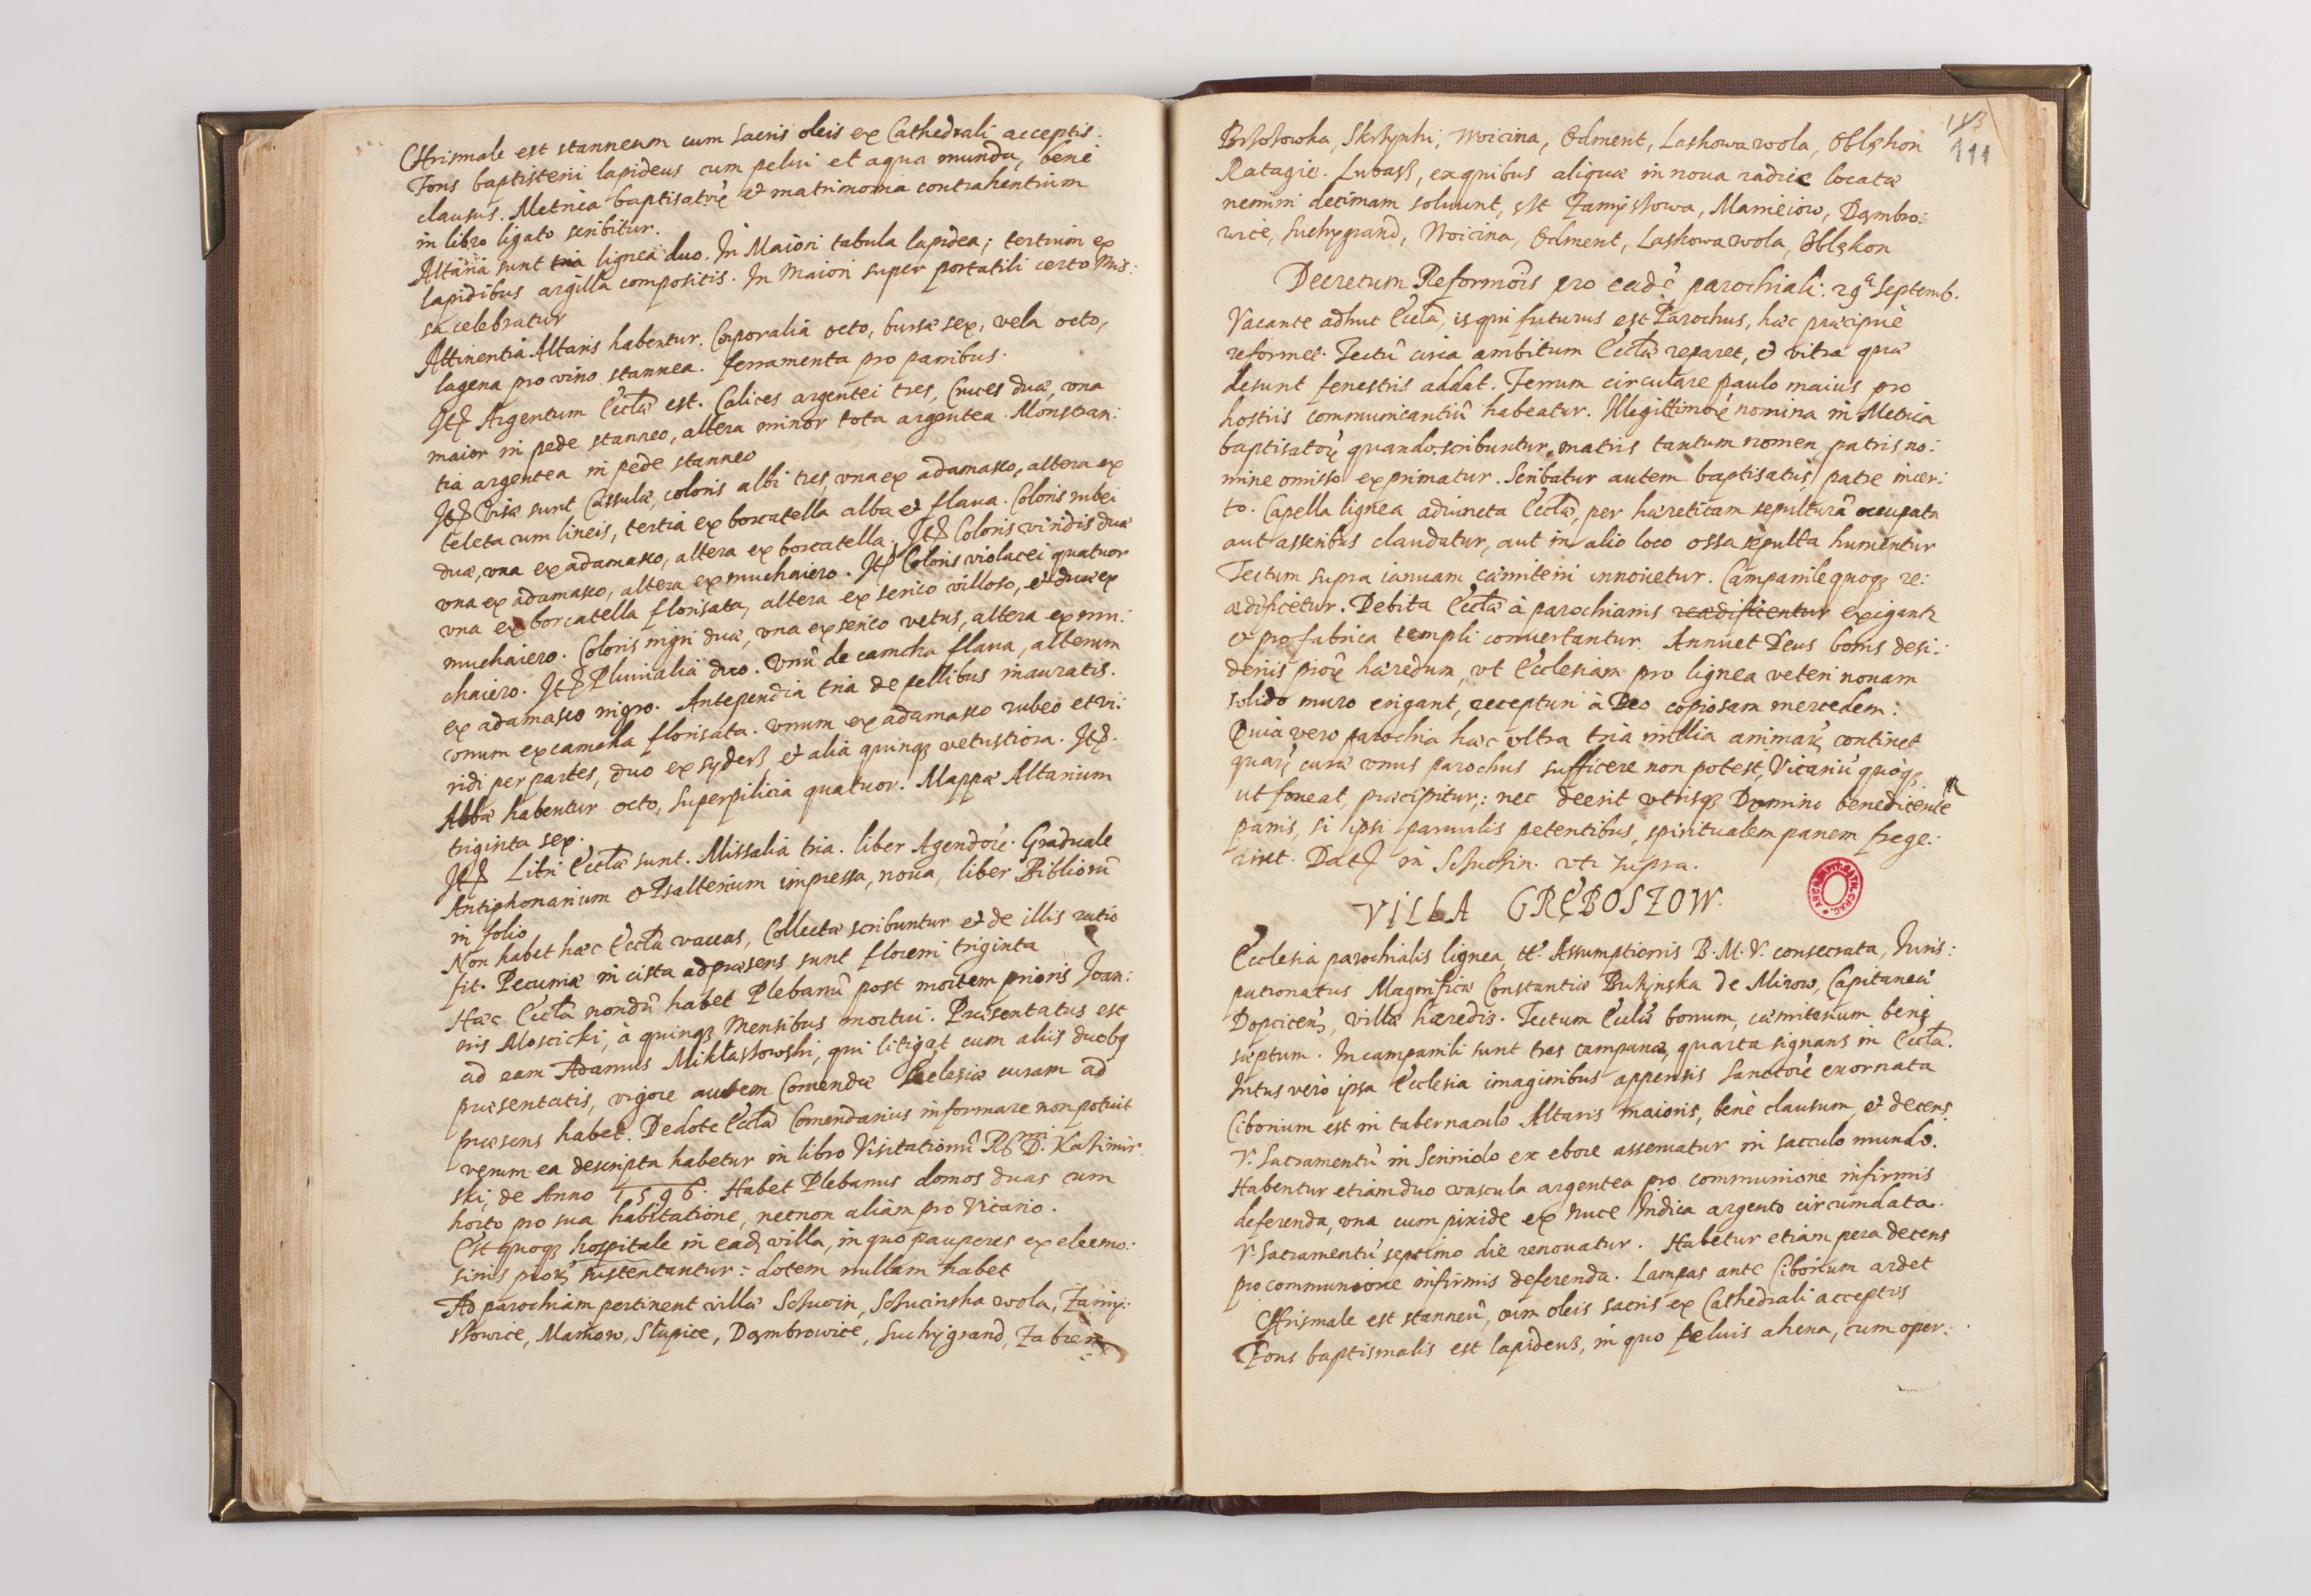 Chrismale est stanneum cum sacris oleis ex Cathedrali acceptis.
Fons baptisterii lapideus cum pelui et aqua munda, bene
clausus. Metrica baptisatorũ et matrimonia contrahentium
in libro ligato scribitur.
Altaria sunt tria lignea duo. In Maiori tabula lapidea; tertium ex
lapidibus argilla compositis. In maiori super portatili certo Mis:
sa celebratur
Attinentia Altaris habentur. Corporalia octo, bursæ sex, vela octo,
lagena pro vino stannea. ferramenta pro panibus.
Itẽ Argentum Eccłæ est. Calices argentei tres, Cruces duæ, vna
maior in pede stanneo, altera minor tota argentea. Monstran:
tia argentea in pede stanneo
Itẽ Visæ sunt Cassulæ, coloris albi tres, vna ex adamasco, altera ex
teleta cum lineis, tertia ex borcatella alba et flaua. Coloris rubei
duæ, vna ex adamasco, altera ex borcatella. Itẽ Coloris viridis duæ
vna ex adamasco, altera ex muchaiero. Itẽ Coloris violacei quatuor
vna ex borcatella florisata, altera ex serico villoso, et duæ ex
muchaiero. Coloris nigri duæ, vna ex serico vetus, altera ex mu:
chaiero. Itẽ Pluuialia duo. Vnũ de camcha flaua, alterum
ex adamasco nigro. Antependia tria de pellibus inauratis.
vnum ex camcha florisata. vnum ex adamasco rubeo et vi:
ridi per partes, duo ex syders et alia quinqȝ vetustiora. Itẽ.
Albæ habentur octo, superpilicia quatuor. Mappæ Altarium
triginta sex.
Itẽ Libri Eccłæ sunt. Missalia tria. liber Agendorũ. Graduale
Antiphonarium et Psalterium impressa, noua, liber Bibliorũ
in folio
Non habet hæc Eccła vaccas, Collectæ scribuntur et de illis ratio
fit. Pecuniæ in cista ad præsens sunt floreni triginta
Hæc Eccła nondũ habet Plebanũ post mortem prioris Joan:
nis Moscicki, à quinqȝ mensibus mortui. Præsentatus est
ad eam Adamus Mikłaszowski, qui litigat cum aliis duobꝯ
præsentatis, vigore autem Comendæ Ecclesiæ curam ad
præsens habet. De dote Eccłæ Comendarius informare non potuit
verum ea descripta habetur in libro Visitationũ Rssmi D. Kazimir
ski, de Anno 1596. Habet Plebanus domos duas cum
horto pro sua habitatione, necnon aliam pro Vicario.
Est quoqȝ hospitale in eadẽ villa, in quo pauperes ex eleemo:
sinis piorũ sustentantur: dotem nullam habet
Ad parochiam pertinent villæ Szczucin, Szczucinska wola, Zamy:
Słowice, Maniow, Słupice, Dąmbrowice, Suchygrand, Zabrez
113
111
Brzozowka, Skrzynki, Woicina, Odment, Laskowa wola, Oblękon
Ratagie. Lubasz, ex quibus aliquæ in noua radice locatæ
nemini decimam soluunt, vt Zamysłowa, Manieiow, Dąmbro:
wice, Suchygrand, Woicina, Odment, Laskowa wola, Oblękon
Decretum Reformõis pro eadẽ parochiali. 29ª Septemb.
Vacante adhuc Eccła, is qui futurus est Parochus, hæc præcipuè
reformet. Tectũ circa ambitum Eccłæ reparet, et vitra quæ
desunt fenestris addat. Ferrum circulare paulo maius pro
hostiis communicantiũ habeatur. Illegittimorũ nomina in Metrica
baptisatorũ quando scribuntur, matris tantum nomen patris no:
mine omisso exprimatur. Scribatur autem baptisatus patre incer:
to. Capella lignea adiuncta Eccłæ, per hæreticam sepulturã occupata
aut asseribus claudatur, aut in alio loco ossa sepulta humentur
Tectum supra ianuam cæmiterii innouetur. Campanile quoqȝ re:
ædificetur. Debita Eccłæ à parochianis reædificentur exigantr
et pro fabrica templi conuertantur. Annuet Deus bonis desi:
deriis piorũ hæredum, vt Ecclesiam pro lignea veteri nouam
solido muro erigant, recepturi à Deo copiosam mercedem.
Quia vero parochia hæc vltra tria millia animarũ continet
quarũ curæ vnus parochus sufficere non potest, Vicariũ quoqȝ
ut foueat, præcipitur: nec deerit vtrisqȝ Domino benedicente
panis, si ipsi paruulis petentibus, spiritualem panem frege:
rint. Datẽ in Szczucin. vt supra.
VILLA GRĘBOSZOW.
Ecclesia parochialis lignea, tt. Assumptionis B. M. V. consecrata, Iuris:
patronatus Magnificæ Constantiæ Bużynska de Mirow, Capitaneæ
Dopcicens, villæ hæredis. Tectum Eccłæ bonum, cæmiterium bene
sæptum. In campanili sunt tres campanæ, quarta signans in Eccła.
Intus verò ipsa Ecclesia imaginibus appensis Sanctorũ exornata
Ciborium est in tabernaculo Altaris maioris, benè clausum, et decens
V. Sacramentũ in Scriniolo ex ebore asseruatur in sacculo mundo.
Habentur etiam duo vascula argentea pro communione infirmis
deferenda, vna cum pixide ex nuce Indica argento circumdata.
V. Sacramentũ septimo die renouatur. Habetur etiam pera decens
pro communione infirmis deferenda. Lampas ante Ciborium ardet
Chrismale est stanneũ, cum oleis sacris ex Cathedrali acceptis
Fons baptismalis est lapideus, in quo peluis ahena, cum oper: